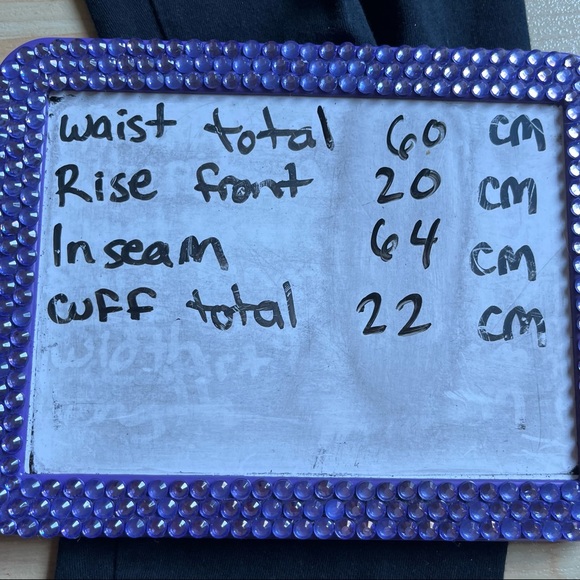 waist total 60 cm
Rise front 20 cm
Inseam 64 cm
cuff total 22 cm